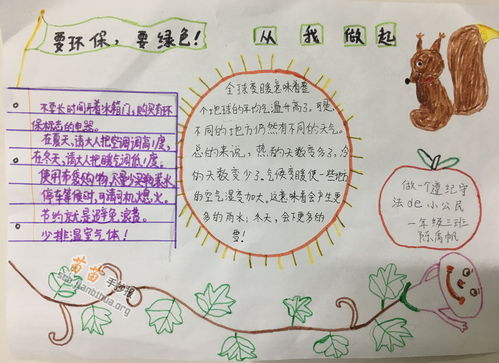 要环保，要绿色！
从我做起
不要长时间开着冰箱门，购买有环
保标志的电器。
在夏天，请大人把空调调高1度，
在冬天，请大人把暖气调低1度。
使用布袋购物，尽量少买瓶装水，
停车等候时，可请司机熄火。
节约就是避免浪费。
少排温室气体！
全球变暖意味着整
个地球的平均气温升高了。可是，
不同的地方仍然有不同的天气。
总的来说，热的天数变多了，冷
的天数变少了。气候变暖使一些地
的空气湿度加大，这意味着会产生更
多的雨水，冬天，会下更多的
雪！
做一个遵纪守
法de小公民
一年级三班
陈禹帆
苗苗
手抄报
shanjianbihua.org